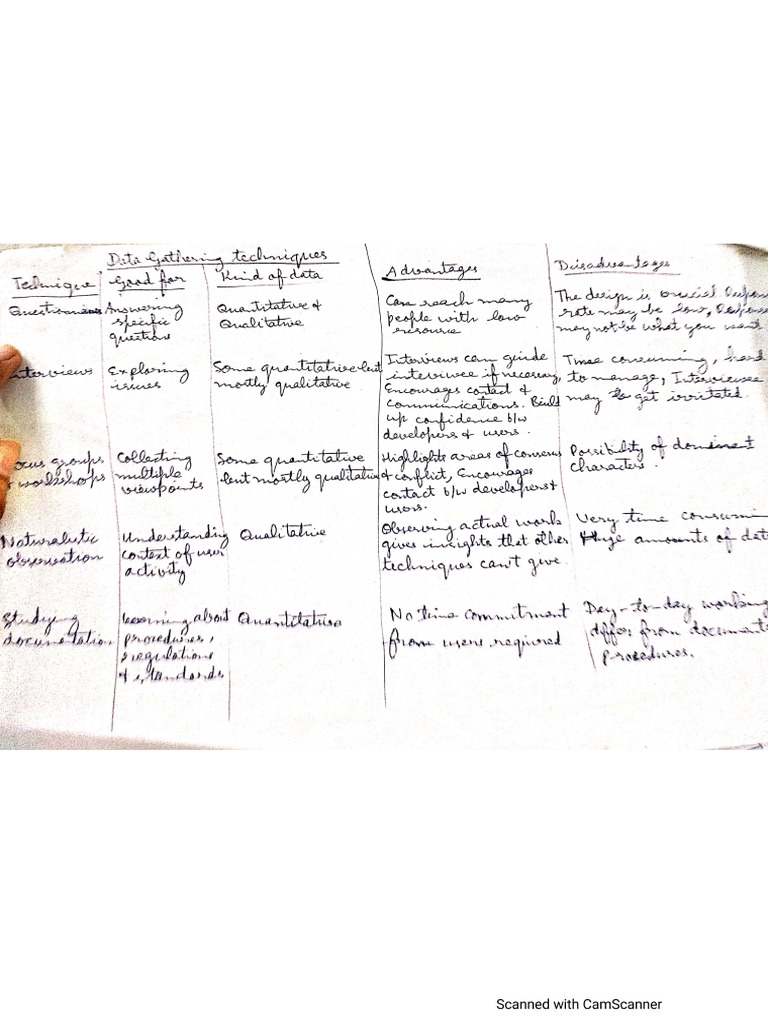 Data Gathering techniques
Technique
Good for
Kind of data
Advantages
Disadvantages
Questionnaires
Answering
specific
questions
Quantitative &
Qualitative
Can reach many
people with low
resource
The design is crucial
rate may be low,
may not be what you want
Interviews
Exploring
issues
Some quantitative but
mostly qualitative
Interviews can guide
interviwee if necessary,
Encourages contact &
communications. Build
up confidence b/w
developers & users.
Time consuming, hard
to manage, Interviewee
may get irritated.
ocus groups
workshops
Collecting
multiple
viewpoints
Some quantitative
but mostly qualitative
Highlights areas of
& conflict, Encourages
contact b/w developers &
users.
Possibility of dominent
characters.
Naturalistic
observation
Understanding
context of user
activity
Qualitative
Observing actual work
gives insights that other
techniques can't give.
Very time
Huge amounts of
Studying
documentation
Learning about
procedures,
regulations
& standards
Quantitative
No time commitment
from users required
Day-to-day working
differ from
procedures.
Scanned with CamScanner